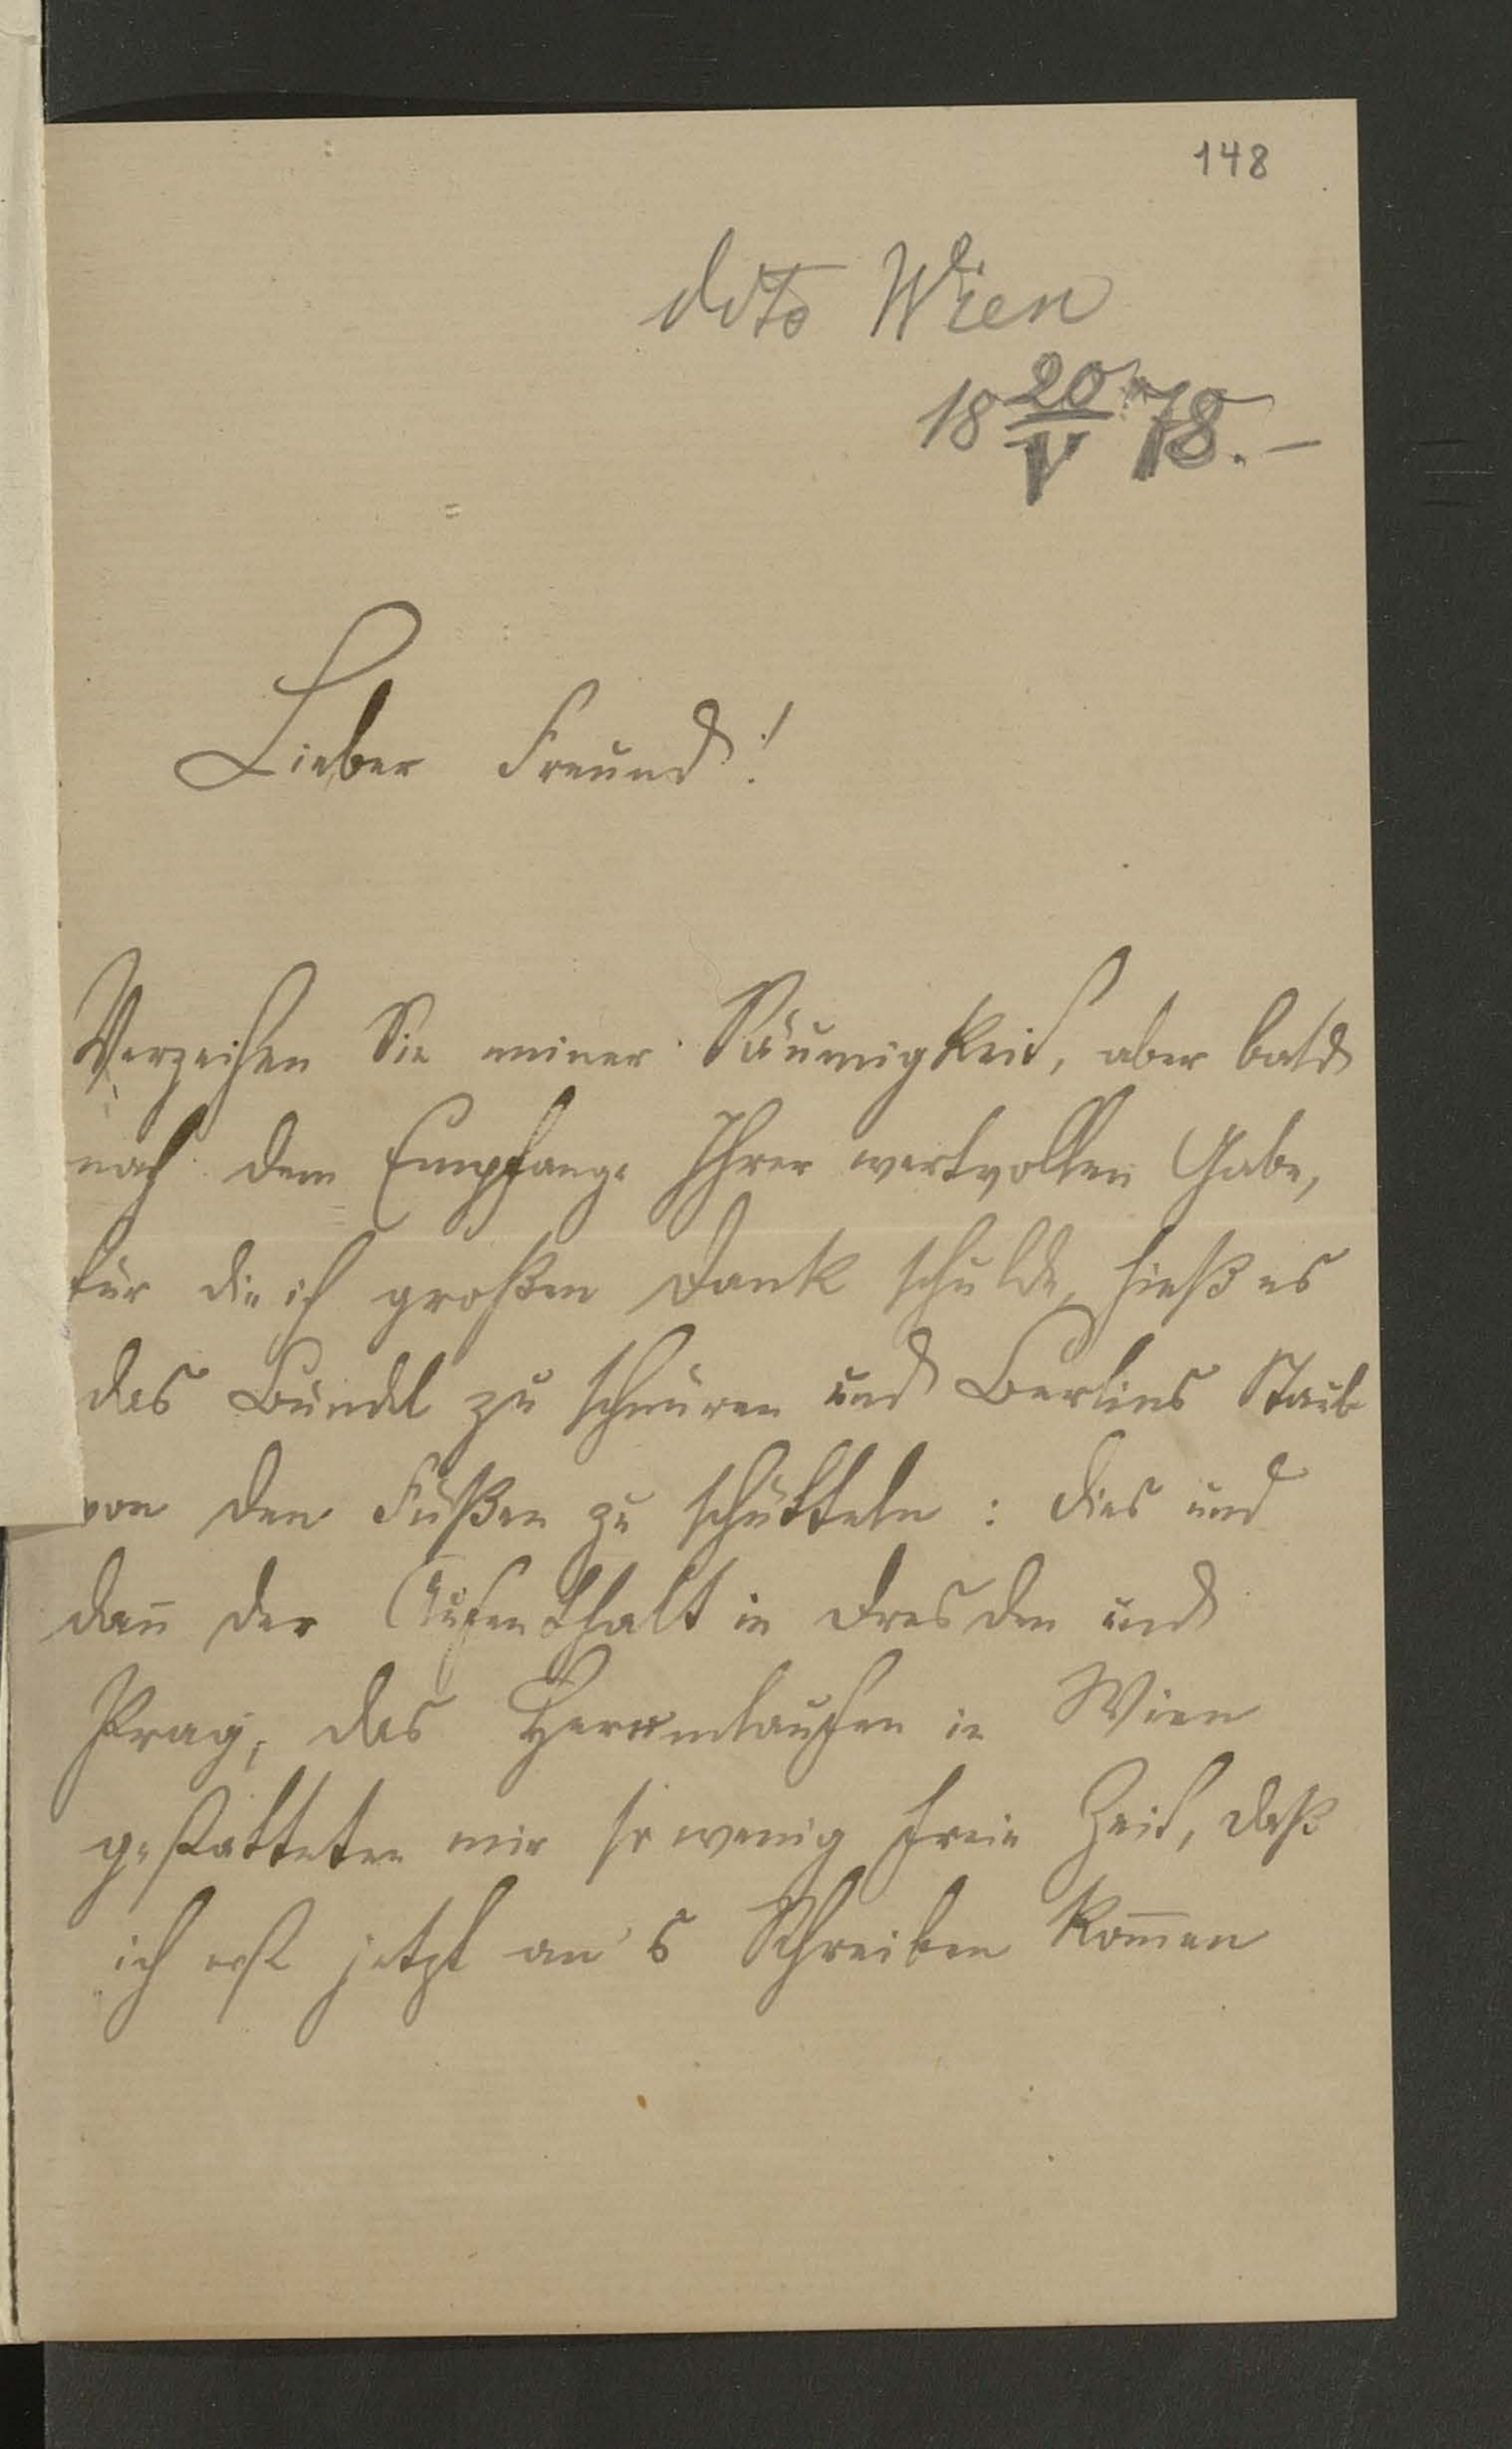 148
ddto Wien
18 20/V 78.–
Lieber Freund!
Verzeihen Sie meiner Säumigkeit, aber bald
nach dem Empfange Ihrer wertvollen Gabe,
für die ich großen Dank schulde, hieß es
das Bündel zu schnüren und Berlins Staub
von den Füßen zu schütteln: dies und
dan̄ der Aufenthalt in Dresden und
Prag, das Herumlaufen in Wien
gestatteten mir so wenig freie Zeit, daß
ich erst jetzt an's Schreiben kom̄en